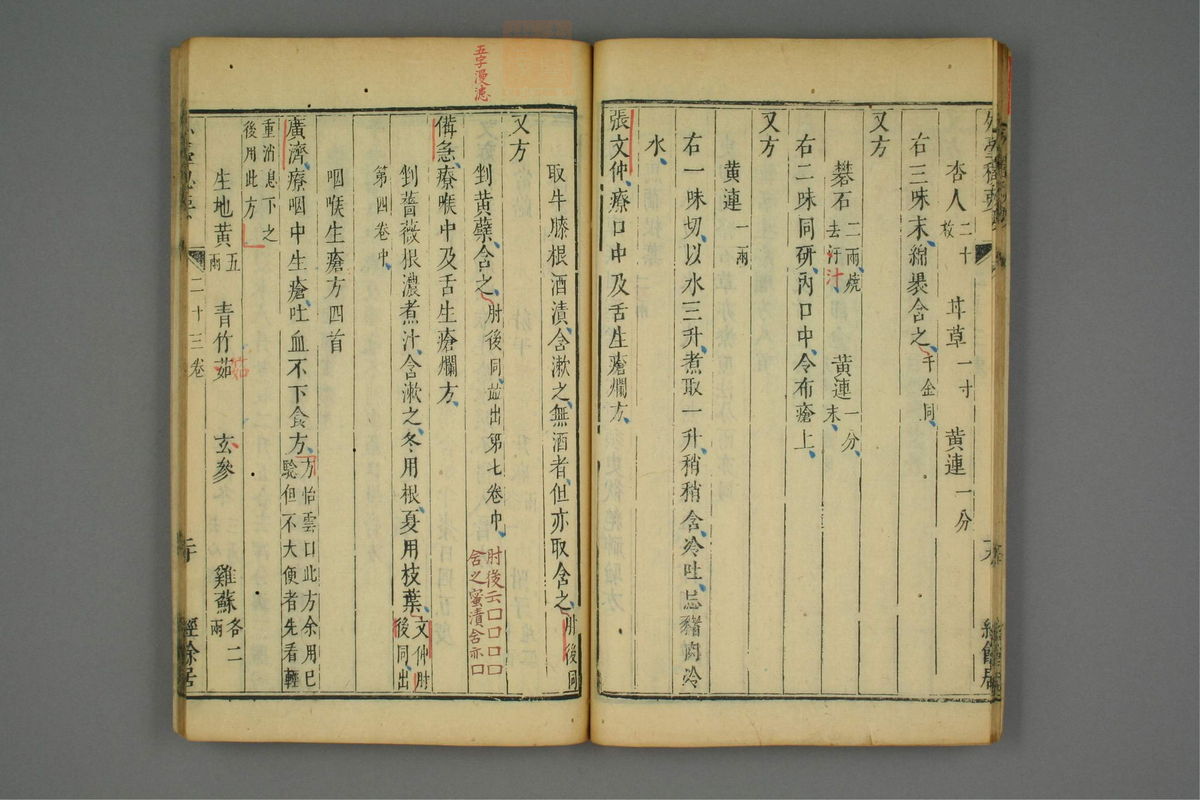 杏人二十枚 甘草一寸 黄連一分
右三味末綿褁含之千金同
又方
礬石二兩燒去汙汁 黄連一分末
右二味同研内口中令布瘡上
又方
黄連一兩
右一味切以水三升煮取一升稍稍含冷吐忌豬肉冷
水
張文仲療口中及舌生瘡爛方
取牛膝根酒漬含漱之無酒者但亦取含之肘後同
又方
剉黄蘗含之肘後同並出第七卷中
肘後云口口口口口
含之蜜漬含亦口
五字漫漶
備急療喉中及舌生瘡爛方
剉薔薇根濃煮汁含漱之冬用根夏用枝葉文仲肘後同出
第四卷中
咽喉生瘡方四首
廣濟療咽中生瘡吐血不下食方方怡雲口此方余用巳驗但不大便者先看輕
重消息下之後用此方
生地黄五兩 青竹茹 玄參 雞蘇各二兩
茹
二十三卷
二十
經餘居